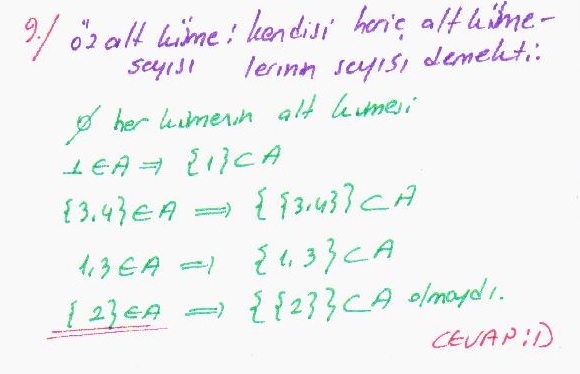 9./ öz alt küme : kendisi hariç alt küme-
sayısı lerinin sayısı demekti.
∅ her kümenin alt kümesi
1 ∈ A ⇒ {1} ⊂ A
{3,4} ∈ A ⇒ {{3,4}} ⊂ A
1,3 ∈ A ⇒ {1,3} ⊂ A
{2} ∈ A ⇒ {{2}} ⊂ A olmaydı.
CEVAP : D